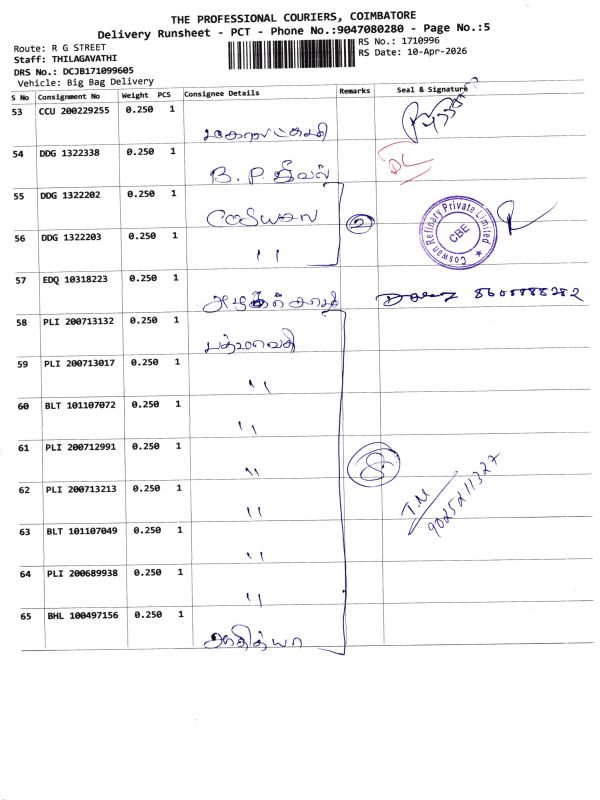 THE PROFESSIONAL COURIERS, COIMBATORE
Delivery Runsheet - PCT - Phone No.:9047080280 - Page No.:5
Route: R G STREET
RS No.: 1710996
Staff: THILAGAVATHI
RS Date: 10-Apr-2026
DRS No.: DCJB171099605
Vehicle: Big Bag Delivery
S No Consignment No Weight PCS Consignee Details Remarks Seal & Signature
53 CCU 200229255 0.250 1
மகேஷ்
54 DDG 1322338 0.250 1
B. P. ஜீவல் DL
55 DDG 1322202 0.250 1
2
Coswan Refinary Private Limited
CBE
56 DDG 1322203 0.250 1
"
57 EDQ 10318223 0.250 1
8608888282
58 PLI 200713132 0.250 1
பத்மாவதி
59 PLI 200713017 0.250 1
"
60 BLT 101107072 0.250 1
"
61 PLI 200712991 0.250 1
"
8
62 PLI 200713213 0.250 1
"
T.M
9025211327
63 BLT 101107049 0.250 1
"
64 PLI 200689938 0.250 1
"
65 BHL 100497156 0.250 1
ஆதித்யா